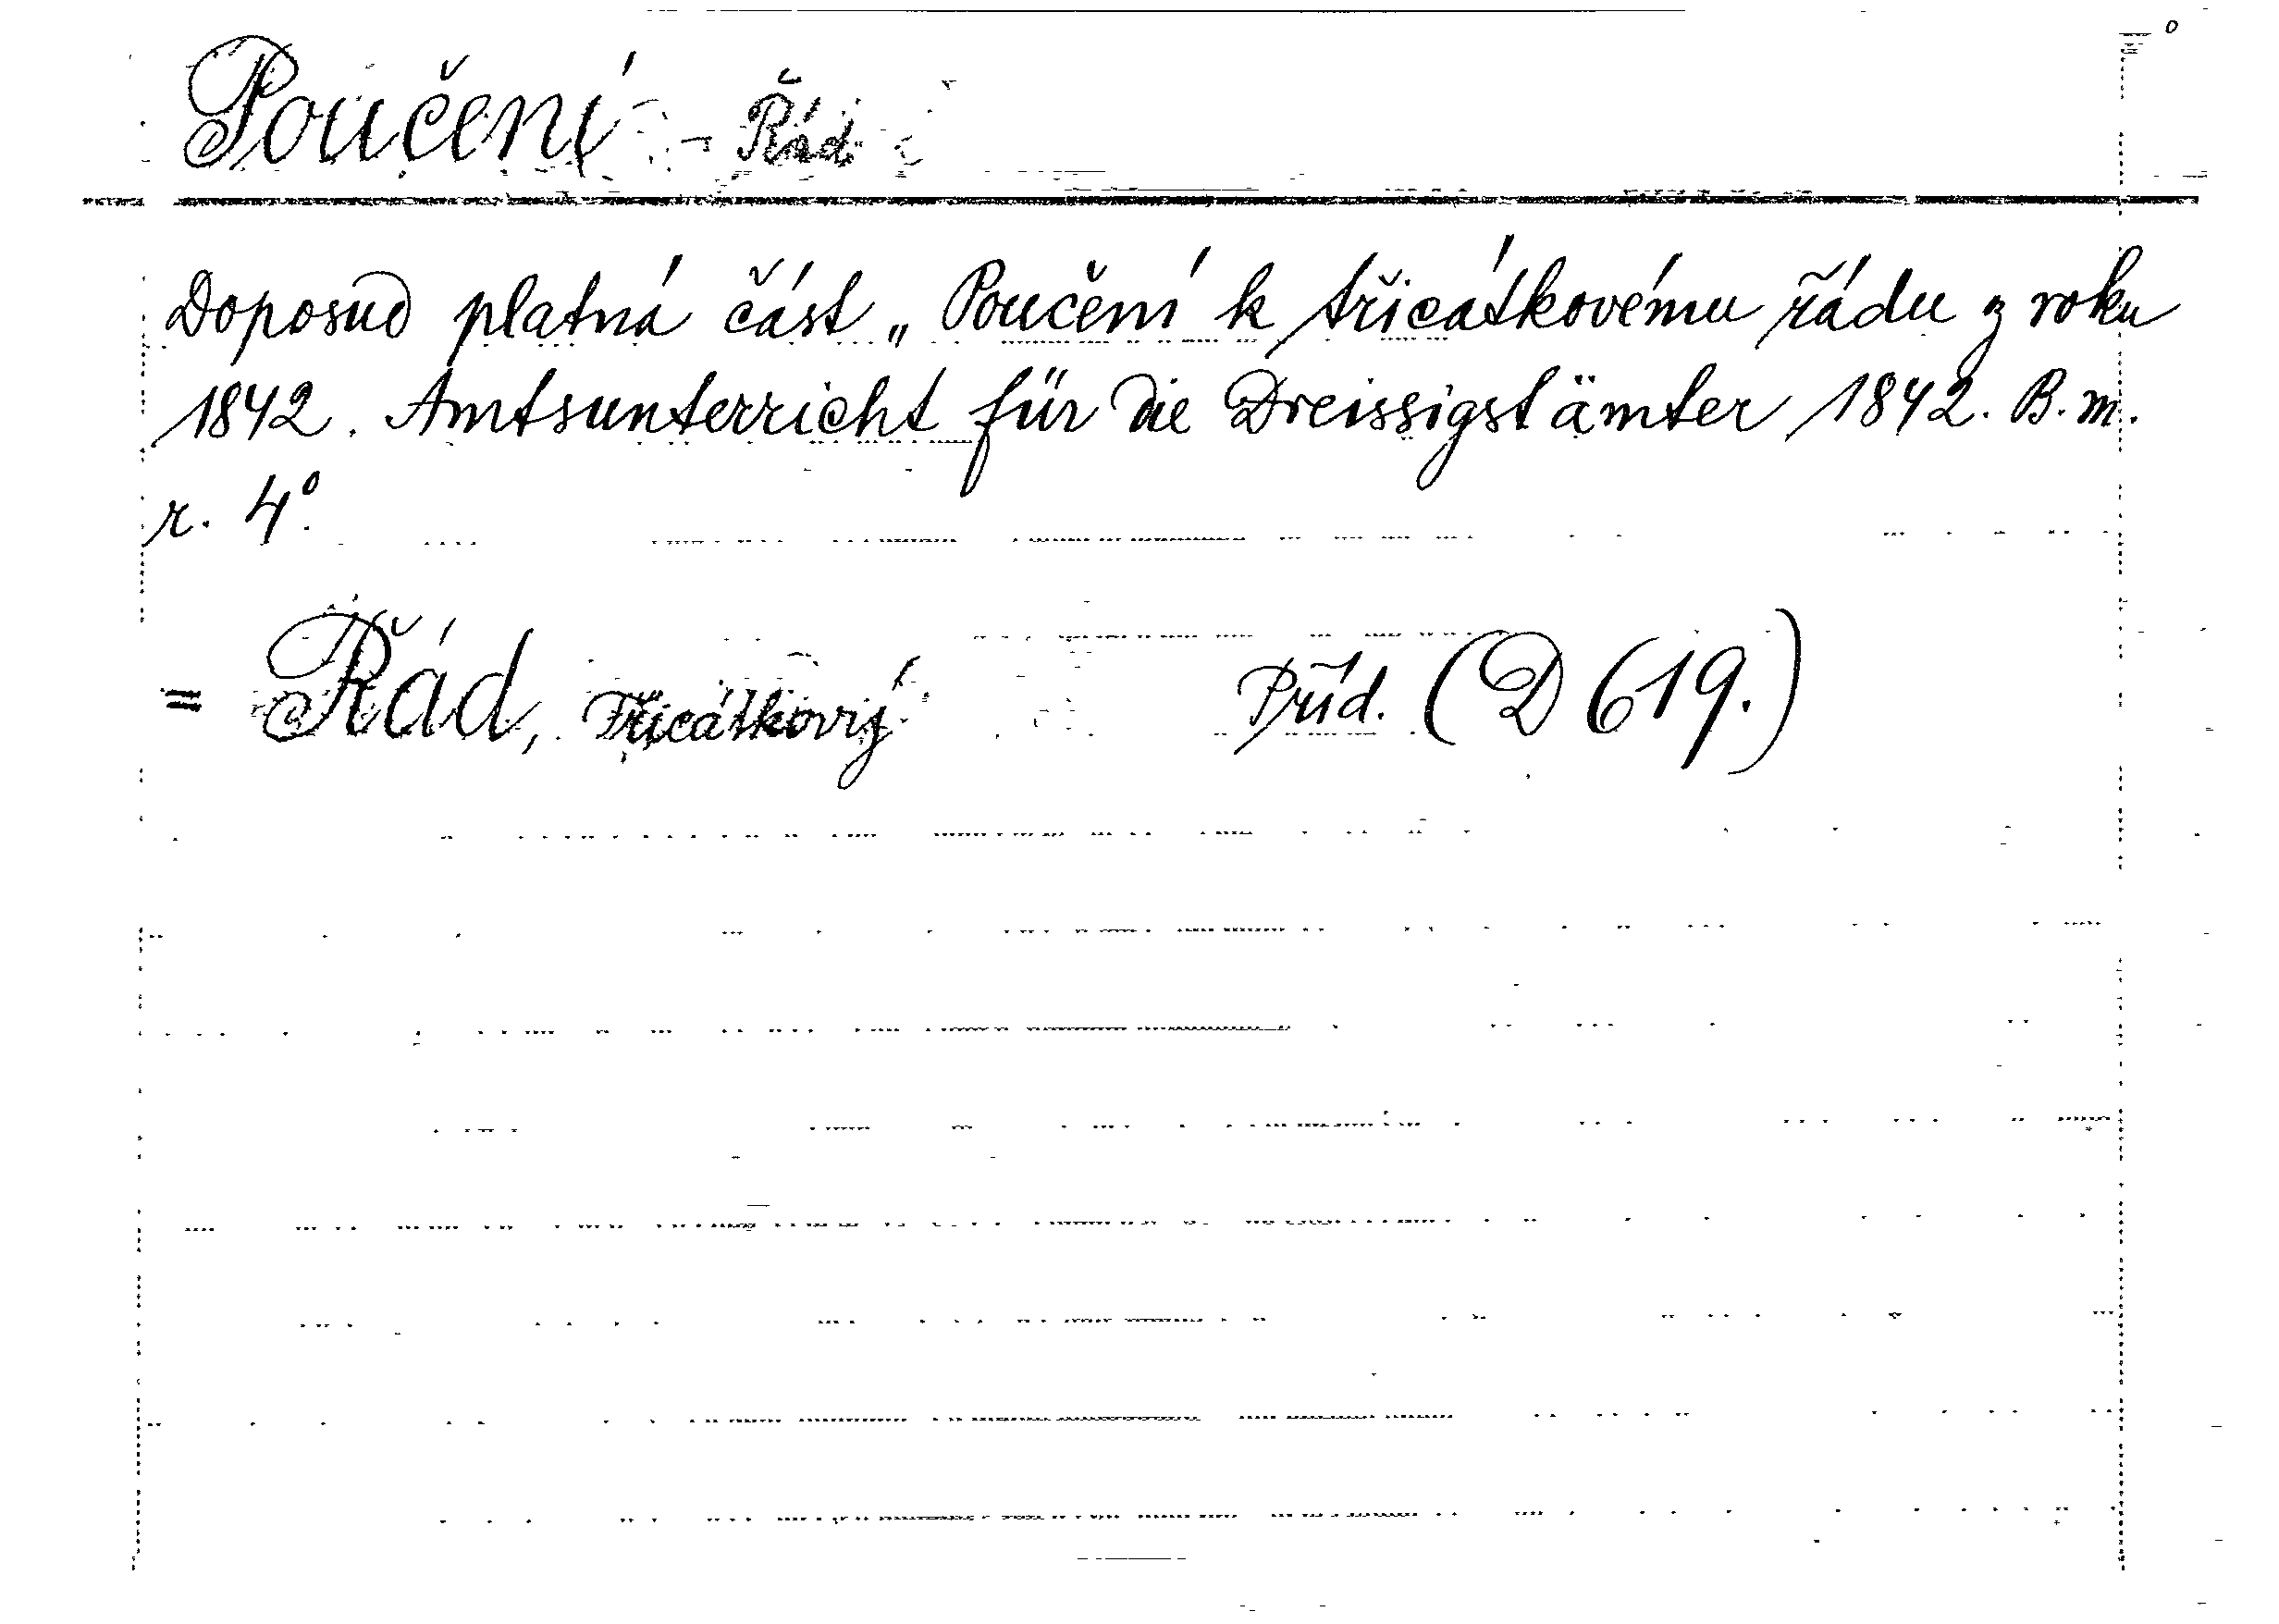 Poučení - Řád
Doposud platná část „Poučení k třicátkovému řádu z roku
1842. Amtsunterricht für die Dreissigstämter 1842. B. m.
r. 4°.
= Řád, Třicátkový Příd. (D 619.)